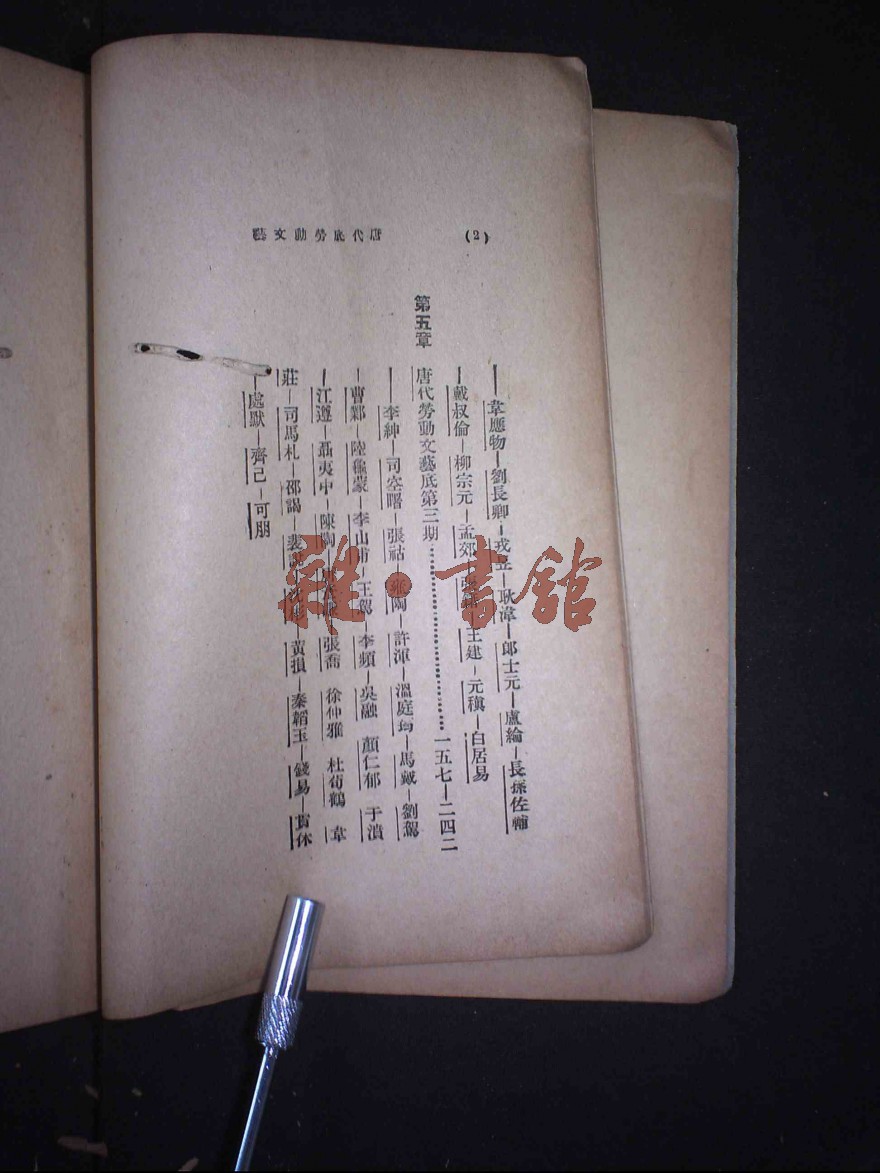 (2)
唐代底勞動文藝
——韋應物—劉長卿—戎昱—耿湋—郎士元—盧綸—長孫佐輔
—戴叔倫—柳宗元—孟郊—王建—元稹—白居易
第五章 唐代勞動文藝底第三期…………一五七—二四二
——李紳—司空曙—張祜—雍陶—許渾—溫庭筠—馬戴—劉駕
—曹鄴 陸龜蒙—李山甫—王駕—李頻—吳融 顏仁郁 于濆
—江遵—聶夷中—陳陶 張喬 徐仲雅 杜荀鶴 韋
莊—司馬札—邵謁—裴說—黃損—秦韜玉—錢易—貫休
—處默—齊己—可朋
雜·書館